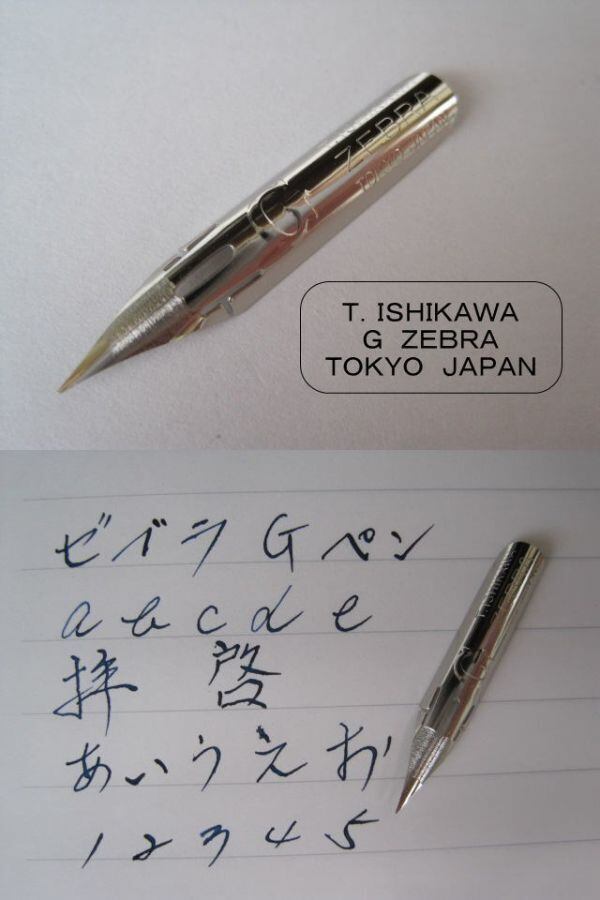 G ZEBRA
TOKYO JAPAN
T. ISHIKAWA
G ZEBRA
TOKYO JAPAN
ゼブラGペン
a b c d e
拝 啓
あいうえお
1 2 3 4 5
ISHIKAWA
G ZEBRA